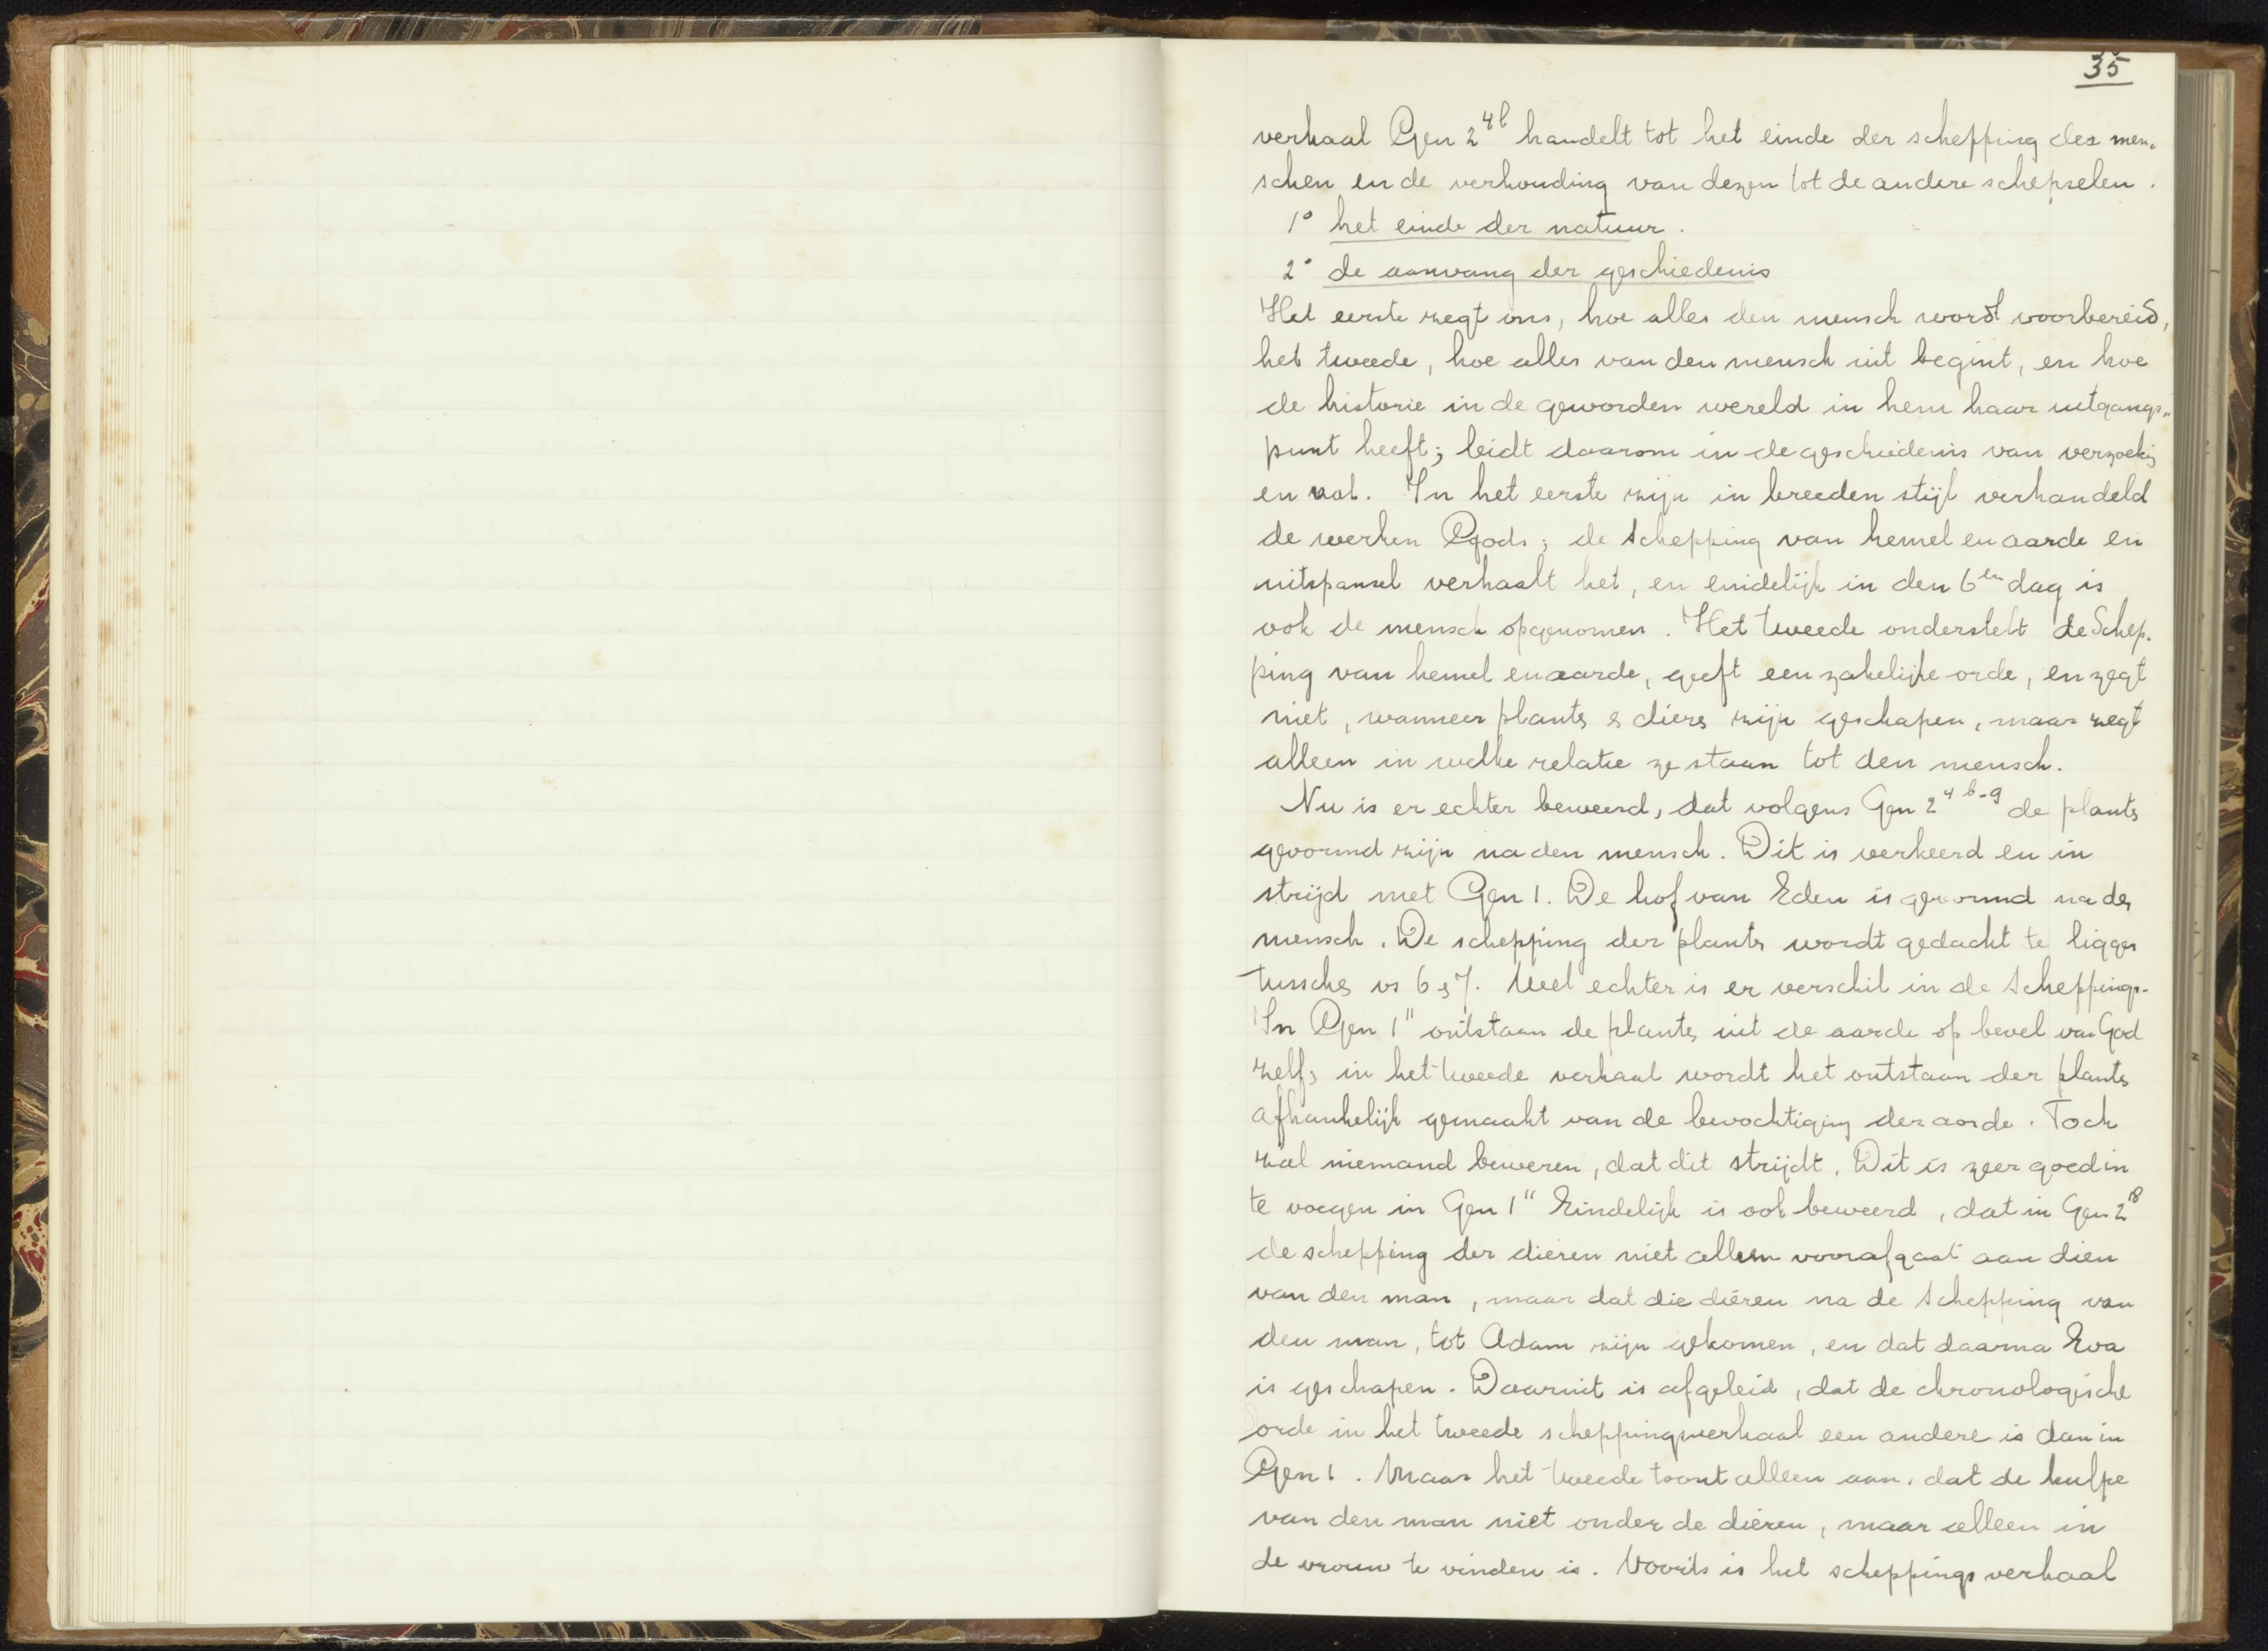 35
verhaal Gen 2 4b handelt tot het einde der schepping des men-
schen en de verhouding van dezen tot de andere schepselen.
1° het einde der natuur.
2° de aanvang der geschiedenis
Het eerste zegt ons, hoe alles den mensch wordt voorbereid,
het tweede, hoe alles van den mensch uit begint, en hoe
de historie in de geworden wereld in hem haar uitgangs-
punt heeft; leidt daarom in de geschiedenis van verzoekg
en val. In het eerste zijn in breeden stijl verhandeld
de werken Gods; de schepping van hemel en aarde en
uitspansel verhaalt het, en eindelijk in den 6en dag is
ook de mensch opgenomen. Het tweede onderstelt de Schep-
ping van hemel en aarde, geeft een zakelijke orde, en zegt
niet, wanneer plants & diers zijn geschapen, maar zegt
alleen in welke relatie ze staan tot den mensch.
Nu is er echter beweerd, dat volgens Gen 2 4b-9 de plants
gevormd zijn na den mensch. Dit is verkeerd en in
strijd met Gen 1. De hof van Eden is gevormd na de
mensch. De schepping der plants wordt gedacht te ligges
tussches vs 6 & 7. Wel echter is er verschil in de scheppings-
In Gen 1 11 ontstaan de plants uit de aarde op bevel van God
zelf; in het tweede verhaal wordt het ontstaan der plants
afhankelijk gemaakt van de bevochtiging der aarde. Toch
zal niemand beweren, dat dit strijdt. Dit is zeer goed in
te voegen in Gen 1 11 Eindelijk is ook beweerd, dat in Gen 2 18
de schepping der dieren niet alleen voorafgaat aan dien
van den man, maar dat die dieren na de schepping van
den man, tot Adam zijn gekomen, en dat daarna Eva
is geschapen. Daaruit is afgeleid, dat de chronologische
orde in het tweede scheppingsverhaal een andere is dan in
Gen 1. Maar het tweede toont alleen aan, dat de hulpe
van den man niet onder de dieren, maar alleen in
de vrouw te vinden is. Voorts is het scheppingsverhaal